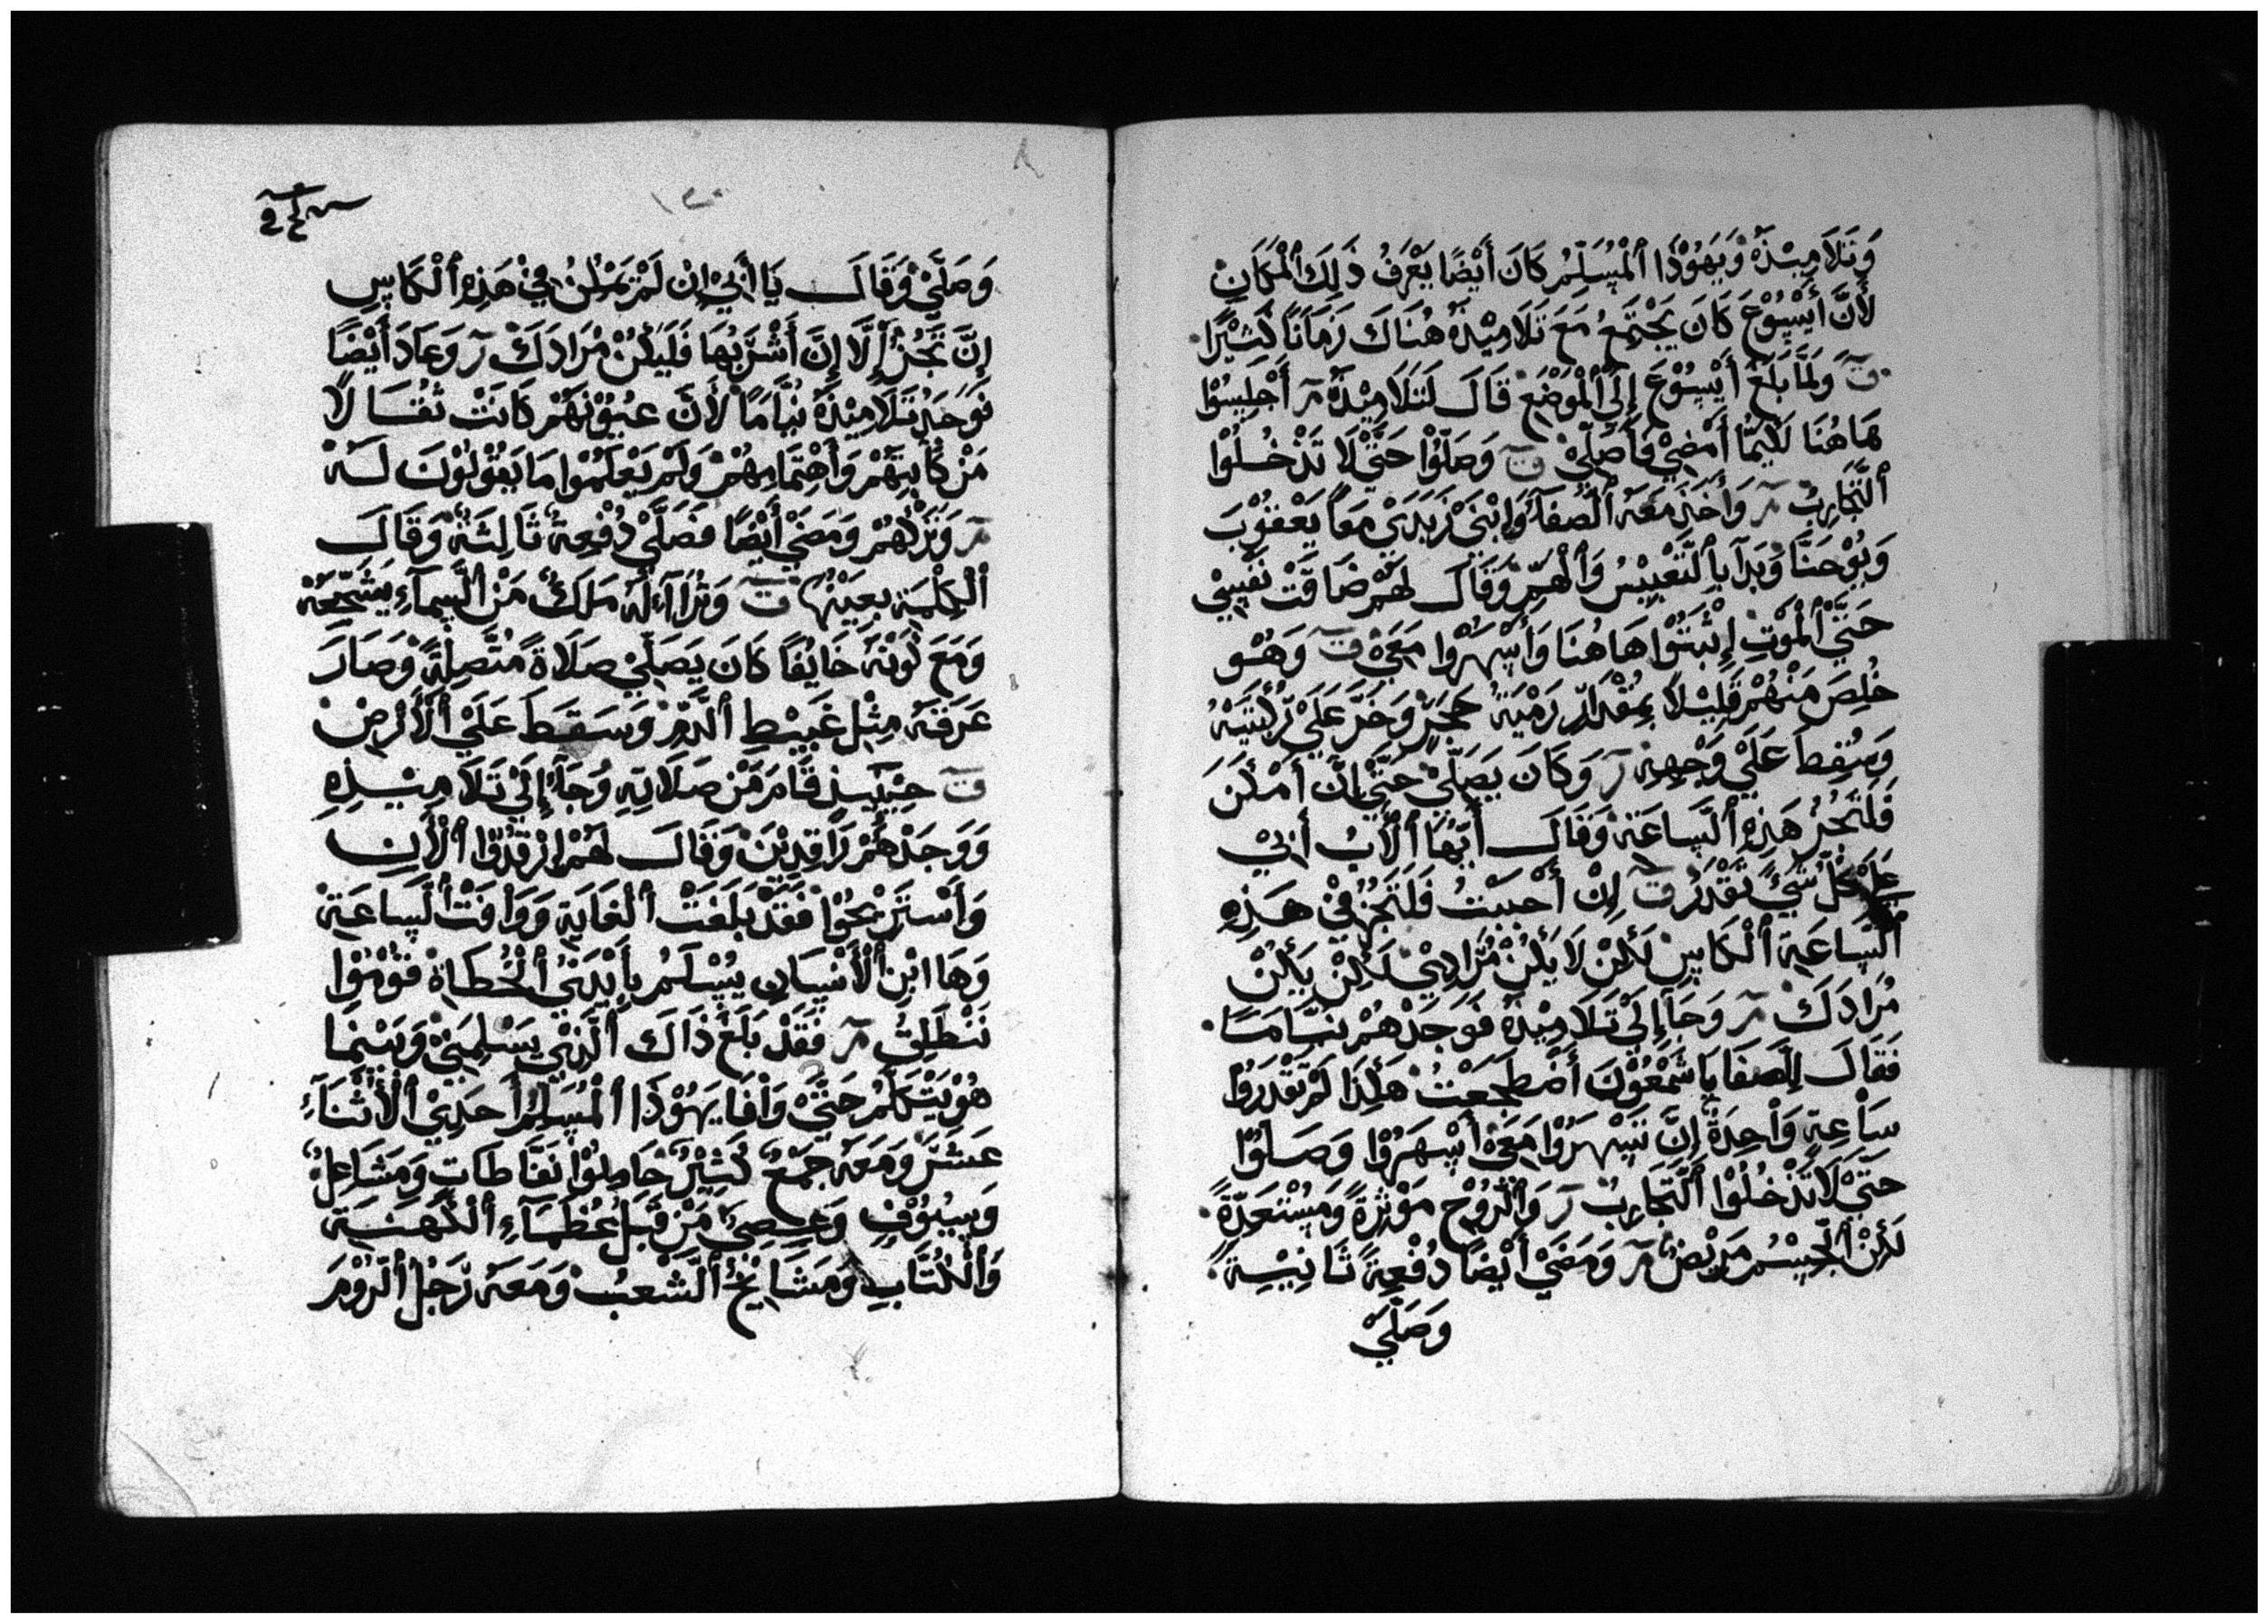 وَتَلَامِيْذَهْ وَيَهُوْذَا ٱلْمُسَلِّمُ كَانَ أَيْضًا يَعْرَفُ ذَلِكَ ٱلْمَكَانِ
لأَنَّ أَيْسُوْعَ كَانَ يَجْتَمِعُ مَعَ تَلَامِيْذَهْ هُنَاكَ زَمَانًا كَثِيْرًا
ق وَلَمَّا بَلَغَ أَيْسُوْعَ إِلَى ٱلْمَوْضِعْ قَالَ لَتَلَامِيْذَهْ مر أَجْلِسُوْا
هَاهُنَا لَكِيْمَا أَمْضِيْ وَأُصَلِّيْ ق وَصَلُّوْا حَتَّىْ لَا تَدْخُلُوْا
ٱلتَّجَارِبْ مر وَأَخَذَ مَعَهْ ٱلصَّفَا وَإِبْنَيْ زَبَدَيْ مَعًا يَعْقُوْبَ
وَيُوْحَنَّا وَبَدَأَ بِٱلتَّعْبِيْسُ وَٱلْهَمِّ وَقَالَ لَهُمْ ضَاقَتْ نَفْسِيْ
حَتَّىْ ٱلْمَوْتِ إِثْبَتُوْا هَاهُنَا وَأَسْهَرُوْا مَعِيْ ق وَهُوْ
خُلِصَ مَنْهُمْ قَلِيْلًا بِمُقْدَارِ رَمْيَةُ حَجَرٍ وَخَرَّ عَلَىْ رُكْبَتَيْهْ
وَسُقِطَ عَلَىْ وَجْهِهِ ر وَكَانَ يَصَلِّيْ حَتَّىْ إِنَّ أَمْكَنَ
فَلْتَجُزْ هَذِهِ ٱلسَّاعَةْ وَقَالَ أَيُّهَا ٱلْأَبُ أَبِيْ
عَلَىْ كُلِّ شَيْءٍ تَقْدَرُ ق إِنْ أَحْبَبْتُ فَلْتَجُزْنِيْ هَذِهِ
ٱلسَّاعَةِ ٱلْكَاسِ لَكِنْ لَا يَكُنْ مُرَادِيْ لَكِنْ يَكُنْ
مُرَادَكَ مر وَجَآءَ إِلَىْ تَلَامِيْذَهْ فَوَجَدْهُمْ نِيَامًا
فَقَالَ لِلصَفَا يَا شَمْعُوْنَ أَضْطَجَعْتُ هَكِذَا لَمْ تَقْدَرُوْا
سَاعِةٍ وَاحِدَةً إِنَّ تَسْهَرُوْا مَعِيْ أَسْهَرُوْا وَصَلُوْا
حَتَىْ لَا تَدْخُلُوْا ٱلتَّجَارِبْ ر وَٱلرُّوْحْ مَوْثِرَةً وَمُسْتَعِدَّةً
لَكِنْ ٱلْجِسْمُ مَرِيْضٌ مر وَمَضَىْ أَيْضًا دُفْعِةً ثَانِيْيةً
وَصَلَّىْ
وَصَلَّىْ وَقَالَ يَا أَبِيْ إِنْ لَمْ يَمْكُنُ فِيْ هَذِهِ ٱلْكَاسِ
إِنَّ تَجُزْ إِلَّا إِنَّ أَشْرَبُهَا فَلْيَكُنْ مُرَادَكَ ر وَعَادَ أَيْضًا
فَوَجَدَ تَلَامِيْذَهْ نِيَّامًا لأَنَّ عِيُوْنَهُمْ كَانَتْ ثُقَالًا
مَنْ كَأْبِتَهُمْ وَٱهْتِمَامِهُمْ وَلَمْ يَعْلَمُوْا مَا يَقُوْلُوْنَ لَهْ
مر وَتَرَكْهُمْ وَمَضَىْ أَيْضًا فَصَلَّىْ دُفْعِةً ثَالِثَةً وَقَالَ
ٱلْكِلْمَةِ بِعَيْنُهَا ق وَتُرَاآءَ لَهُ مَلَكٌ مَنِ ٱلسَّمَآءِ يَشَجِّعَهْ
وَمَعَ كَوْنَهُ خَايِفًا كَانَ يَصَلِّيْ صَلَاةً مُتَّصِلِةً وَصَارَ
عَرَقَهُ مِثْلِ غَبِيْطِ ٱلدَّمِ وَسَقَطَ عَلَىْ ٱلْأَرْضِ
ق حِيْنَيْذٍ قَامَ مَنْ صَلَاتِهِ وُجَآءَ إِلَىْ تَلَامِيْذِهِ
وَوَجَدْهُمْ رَاقِدِيْنَ وَقَالَ لَهُمْ ارْقُدُوْا ٱلْأَنِ
وَأَسْتَرِيْحُوْا فَقَدْ بَلَغَتْ ٱلْغَايَةِ وَوَافَتْ ٱلسَّاعَةْ
وَهَا ابْنِ ٱلْأَنْسَانِ يُسْلَمُ بِأَيْدَيْ ٱلْخُطَاةْ قُوْمُوْا
نَنْطَلِقُ مر فَقَدْ بَلَغَ ذَاكَ ٱلَّذِيْ يَسْلِمَنِيْ وَبَيْنَمَا
هُوْ يَتْكَلَّمُ حَتَّىْ وَافَا يَهُوْذَا ٱلْمُسَلِّمُ أَحَدِيْ ٱلْأَثْنَآءَ
عَشَرَ وَمَعَهُ جَمْعٌ كَثِيْرٌ حَامِلُوْا نَفَّاطَاتٍ وَمَشَاعِلُ
وَسِيُوْفٍ وَعِصِيٍّ مَنْ قَبْلِ عُظَمَآءِ ٱلْكَهَنَةِ
وَٱلْكُتَّابِ وَمَشَايْخُ ٱلشَّعْبُ وَمَعَهْ رَجُلُ ٱلرُّوْمَ